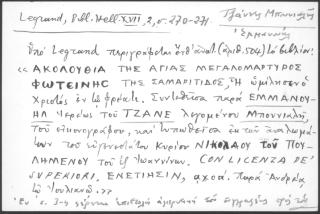 Legrand, Bibl. Hell. XVII, 2, σ. 270-271.
Τζάννη Μπουνιαλῆ
Ὑπὸ Legrand περιγράφεται ὑπ' ἀριθ. (ἀριθ. 504) τὸ βιβλίον:
« ΑΚΟΛΟΥΘΙΑ ΤΗΣ ΑΓΙΑΣ ΜΕΓΑΛΟΜΑΡΤΥΡΟΣ
ΦΩΤΕΙΝΗΣ ΤΗΣ ΣΑΜΑΡΕΙΤΙΔΟΣ, Ἧ ὡμίλησεν ὁ
Χριστὸς ἐν τῷ φρέατι. Συντεθεῖσα παρὰ ΕΜΜΑΝΟΥ-
ΗΛ Ἱερέως τοῦ ΤΖΑΝΕ λεγομένου Μπουνιαλῆ,
τοῦ εἰκονογράφου, καὶ τυπωθεῖσα ἐκ τῶν ἀναλωμά-
των τοῦ εὐγενεστάτου Κυρίου ΝΙΚΟΛΑΟΥ τοῦ ΠΟΥ-
ΛΗΜΕΝΟΥ τοῦ ἐξ Ἰωαννίνων. CON LICENZA DE'
SUPERIORI, ΕΝΕΤΙΗΣΙΝ, αχοα. Παρὰ Ἀνδρέᾳ
τῷ Ἰουλιανῷ. »
Ἐν σ. 3-η